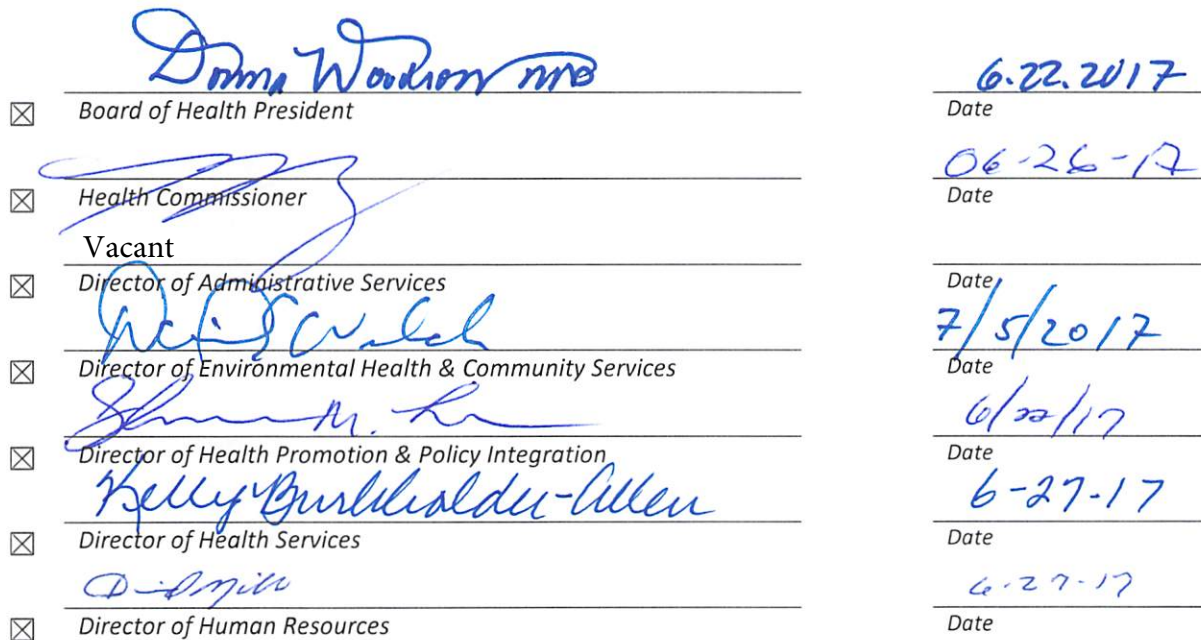 Donna Woodson MD 6.22.2017
☒ Board of Health President Date
06-26-17
☒ Health Commissioner Date
Vacant
☒ Director of Administrative Services Date
7/5/2017
☒ Director of Environmental Health & Community Services Date
M. 6/22/17
☒ Director of Health Promotion & Policy Integration Date
Kelly Burkholder-Allen 6-27-17
☒ Director of Health Services Date
6-27-17
☒ Director of Human Resources Date